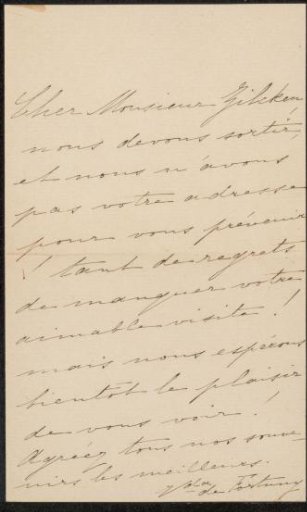 Cher Monsieur Zilcken
nous devons sortir,
et nous n'avons
pas votre adresse
pour vous prévenir
! tant de regrets
de manquer votre
aimable visite !
mais nous espérons
bientôt le plaisir
de vous voir !
Agréez tous nos souve
nirs les meilleurs.
de Fortuny